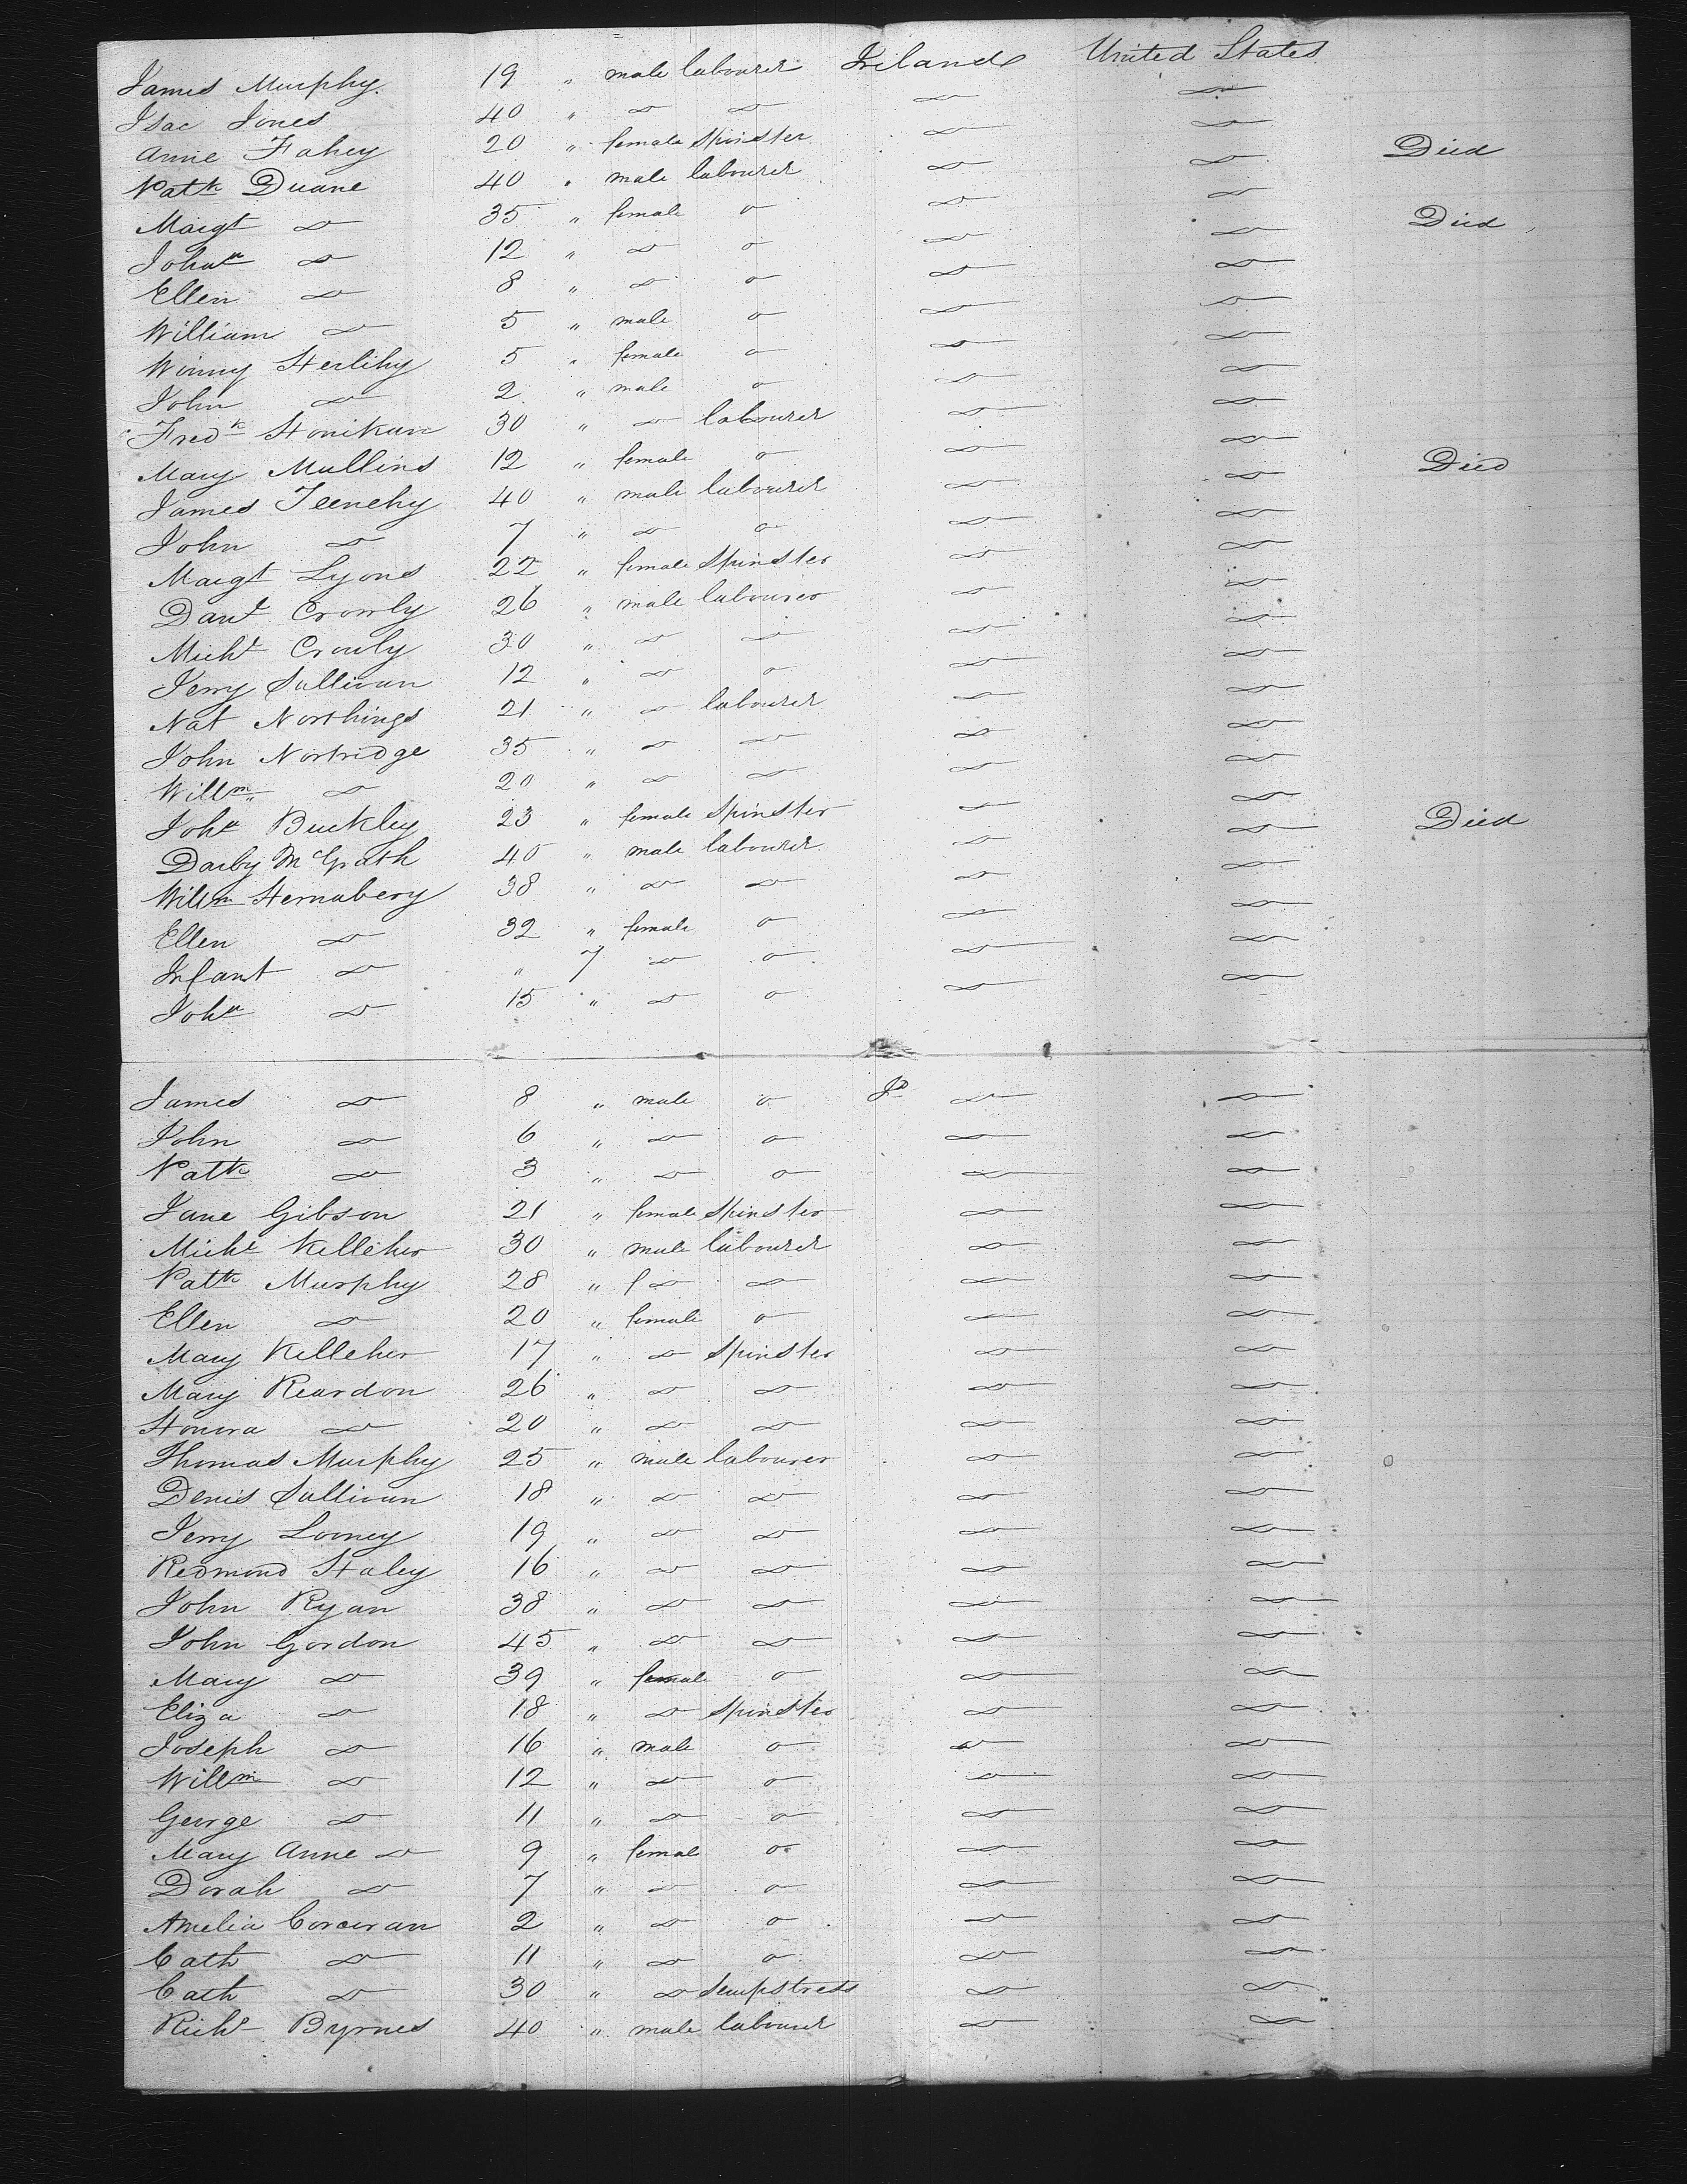 James Murphy 19 " male labourer Ireland United States
Isac Jones 40 " do do do do
Anne Fahey 20 " female Spinster do do
Patk Duane 40 " male labourer do do Died
Margt do 35 " female o do do
Johna do 12 " do o do do Died
Ellen do 8 " do o do do
William do 5 " male o do do
Winny Herlihy 5 " female o do do
John do 2 " male o do do
Fredk Honikan 30 " do labourer do do
Mary Mullins 12 " female o do do
James Teenehy 40 " male labourer do do Died
John do 7 " do o do do
Margt Lyons 22 " female Spinster do do
Danl Crowly 26 " male labourer do do
Michl Crowly 30 " do do do do
Jerry Sullivan 12 " do o do do
Nat Northings 21 " do labourer do do
John Nortridge 35 " do do do do
Willm do 20 " do do do do
Joha Buckley 23 " female Spinster do do
Darby McGrath 40 " male labourer do do Died
Willm Hernabery 38 " do do do do
Ellen do 32 " female o do do
Infant do " 7 do o do do
Joha do 15 " do o do do
James do 8 " male o Id do do
John do 6 " do o do do
Patk do 3 " do o do do
Jane Gibson 21 " female Spinster do do
Michl Kelleher 30 " male labourer do do
Patk Murphy 28 " do do do do
Ellen do 20 " female o do do
Mary Kelleher 17 " do Spinster do do
Mary Reardon 26 " do do do do
Honora do 20 " do do do do
Thomas Murphy 25 " male labourer do do
Denis Sullivan 18 " do do do do
Jerry Looney 19 " do do do do
Redmond Haley 16 " do do do do
John Ryan 38 " do do do do
John Gordon 45 " do do do do
Mary do 39 " female o do do
Eliza do 18 " do Spinster do do
Joseph do 16 " male o do do
Willm do 12 " do o do do
George do 11 " do o do do
Mary Anne do 9 " female o do do
Dorah do 7 " do o do do
Amelia Corcoran 2 " do o do do
Cath do 11 " do o do do
Cath do 30 " do Sempstress do do
Richd Byrnes 40 " male labourer do do